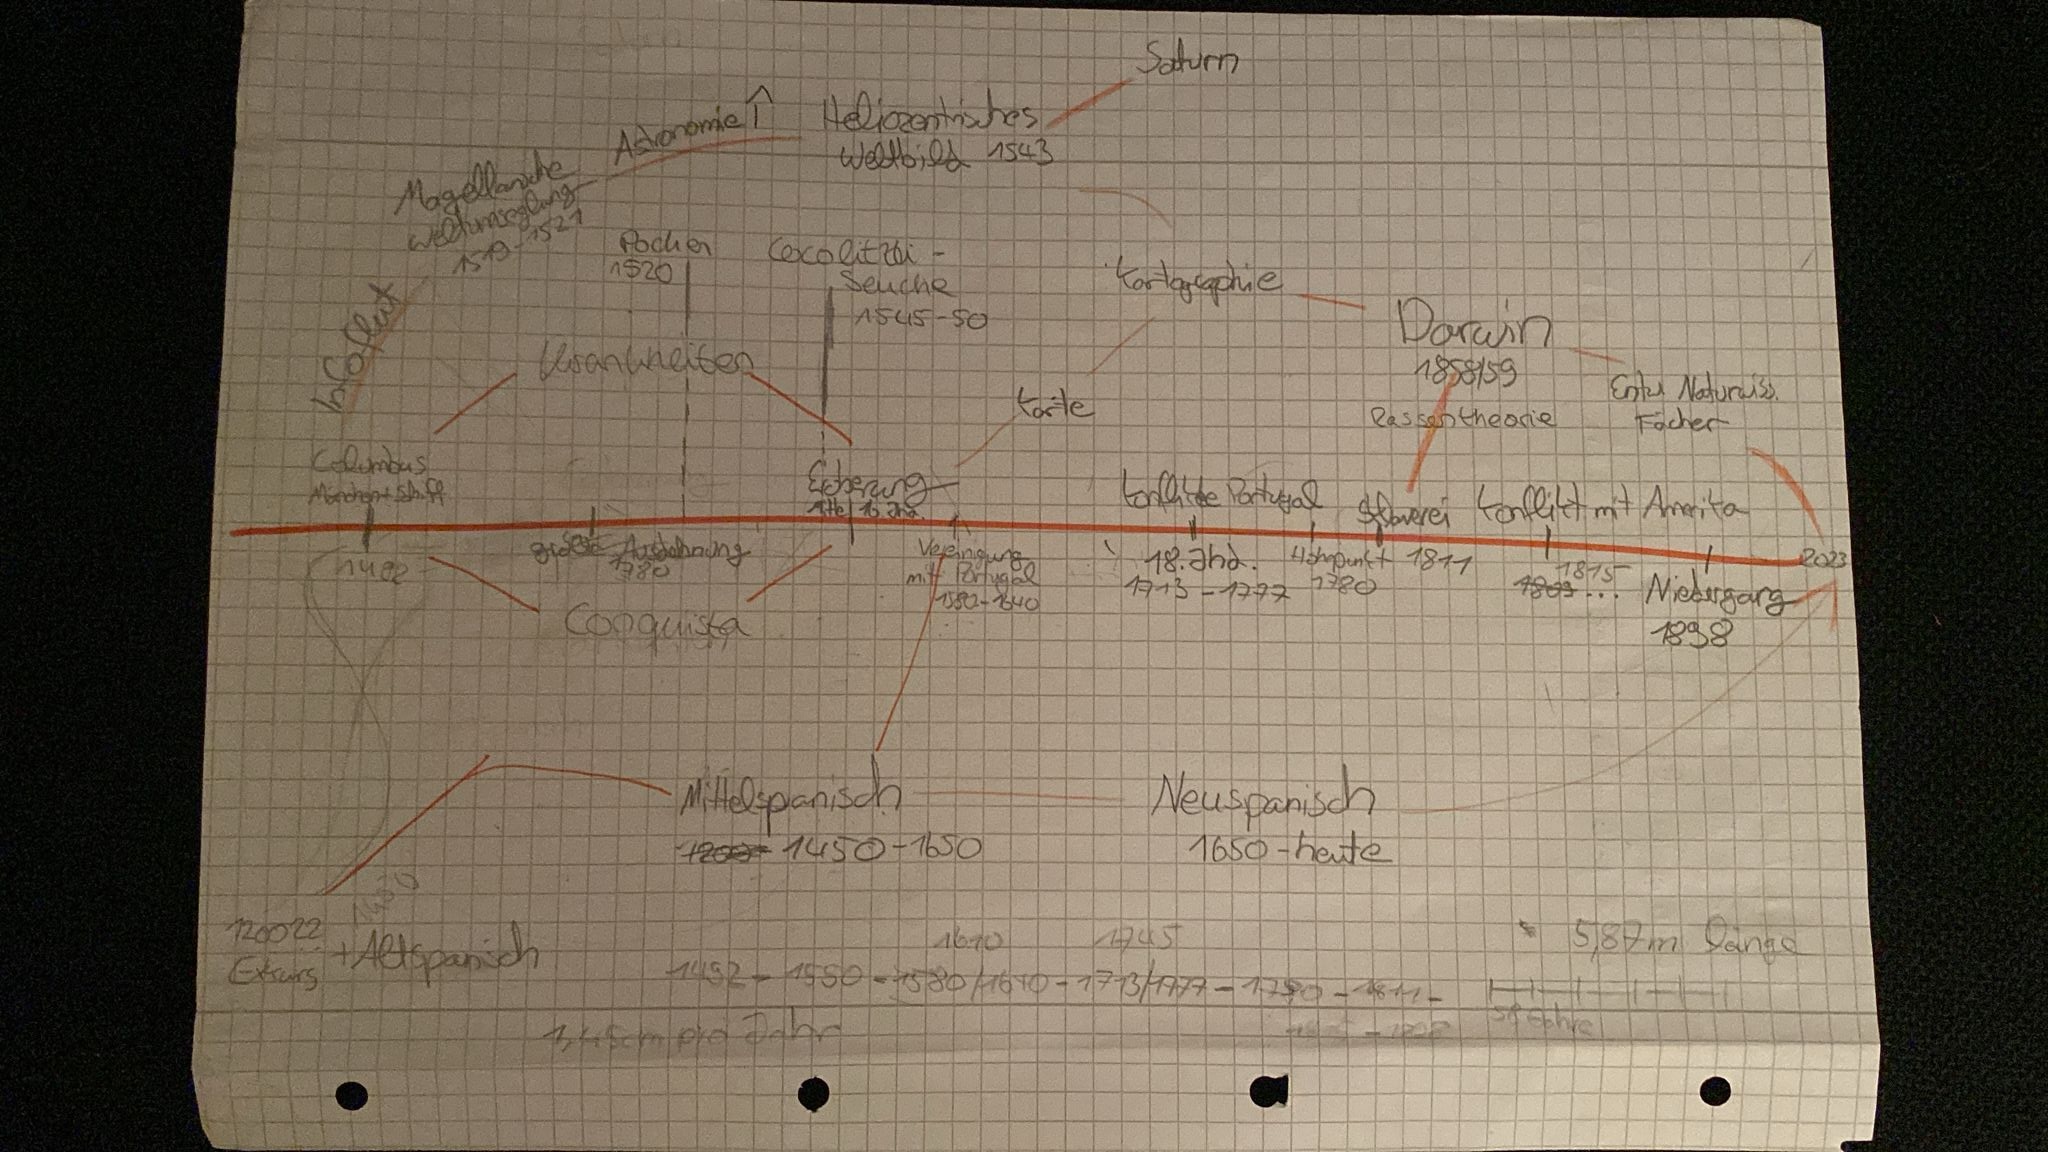 Saturn
Astronomie ↑
Heliozentrisches
Weltbild 1543
Magellansche
Weltumseglung
1519-1521
Pocken
1520
Cocolitzli-
Seuche
1545-50
Kartographie
Darwin
1858/59
Rassentheorie
Entw. Naturwiss.
Fächer
Krankheiten
Karte
Columbus
Sicherung
Mitte 16. Jhd.
Konflikte Portugal
Sklaverei
Konflikt mit Amerika
1492
größte Ausdehnung
1780
Vereinigung
mit Portugal
1580-1640
18. Jhd.
1713-1777
Höhepunkt
1780
1811
1815
...
Niedergang
1898
2023
Conquista
Mittelspanisch
1450-1650
Neuspanisch
1650-heute
1450
Exkurs
+Altspanisch
1610
1745
1492 - 1550 - 1580/1640 - 1713/1777 - 1780 - 1811 -
5,87m Länge
pro Jahr